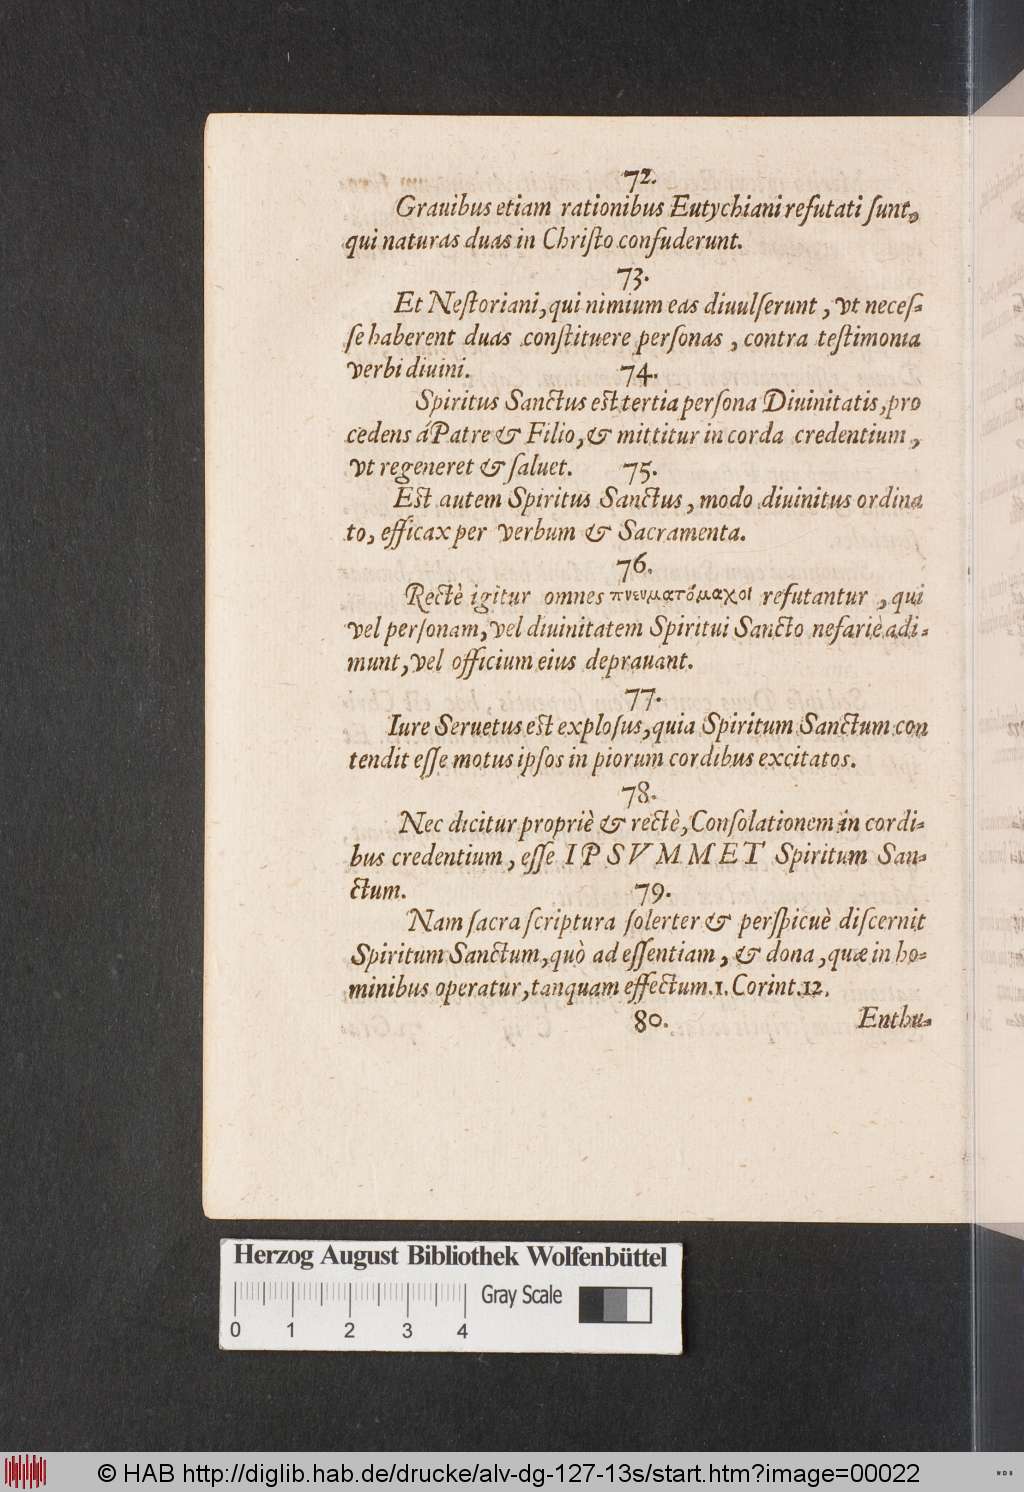 72.
Grauibus etiam rationibus Eutychiani refutati ſunt,
qui naturas duas in Chriſto confuderunt.
73.
Et Neſtoriani, qui nimium eas diuulſerunt, vt neceſ-
ſe haberent duas conſtituere perſonas, contra teſtimonia
verbi diuini.
74.
Spiritus Sanctus eſt tertia perſona Diuinitatis, pro
cedens á Patre & Filio, & mittitur in corda credentium,
vt regeneret & ſaluet.
75.
Eſt autem Spiritus Sanctus, modo diuinitus ordina
to, efficax per verbum & Sacramenta.
76.
Rectè igitur omnes πνευματόμαχοι refutantur, qui
vel perſonam, vel diuinitatem Spiritui Sancto nefariè adi-
munt, vel officium eius deprauant.
77.
Iure Seruetus eſt exploſus, quia Spiritum Sanctum con
tendit eſſe motus ipſos in piorum cordibus excitatos.
78.
Nec dicitur propriè & rectè, Conſolationem in cordi-
bus credentium, eſſe IPSVMMET Spiritum San-
ctum.
79.
Nam ſacra ſcriptura ſolerter & perſpicuè diſcernit
Spiritum Sanctum, quò ad eſſentiam, & dona, quæ in ho-
minibus operatur, tanquam effectum. 1. Corint. 12.
80. Enthu-
Herzog August Bibliothek Wolfenbüttel
Gray Scale
0 1 2 3 4
© HAB http://diglib.hab.de/drucke/alv-dg-127-13s/start.htm?image=00022